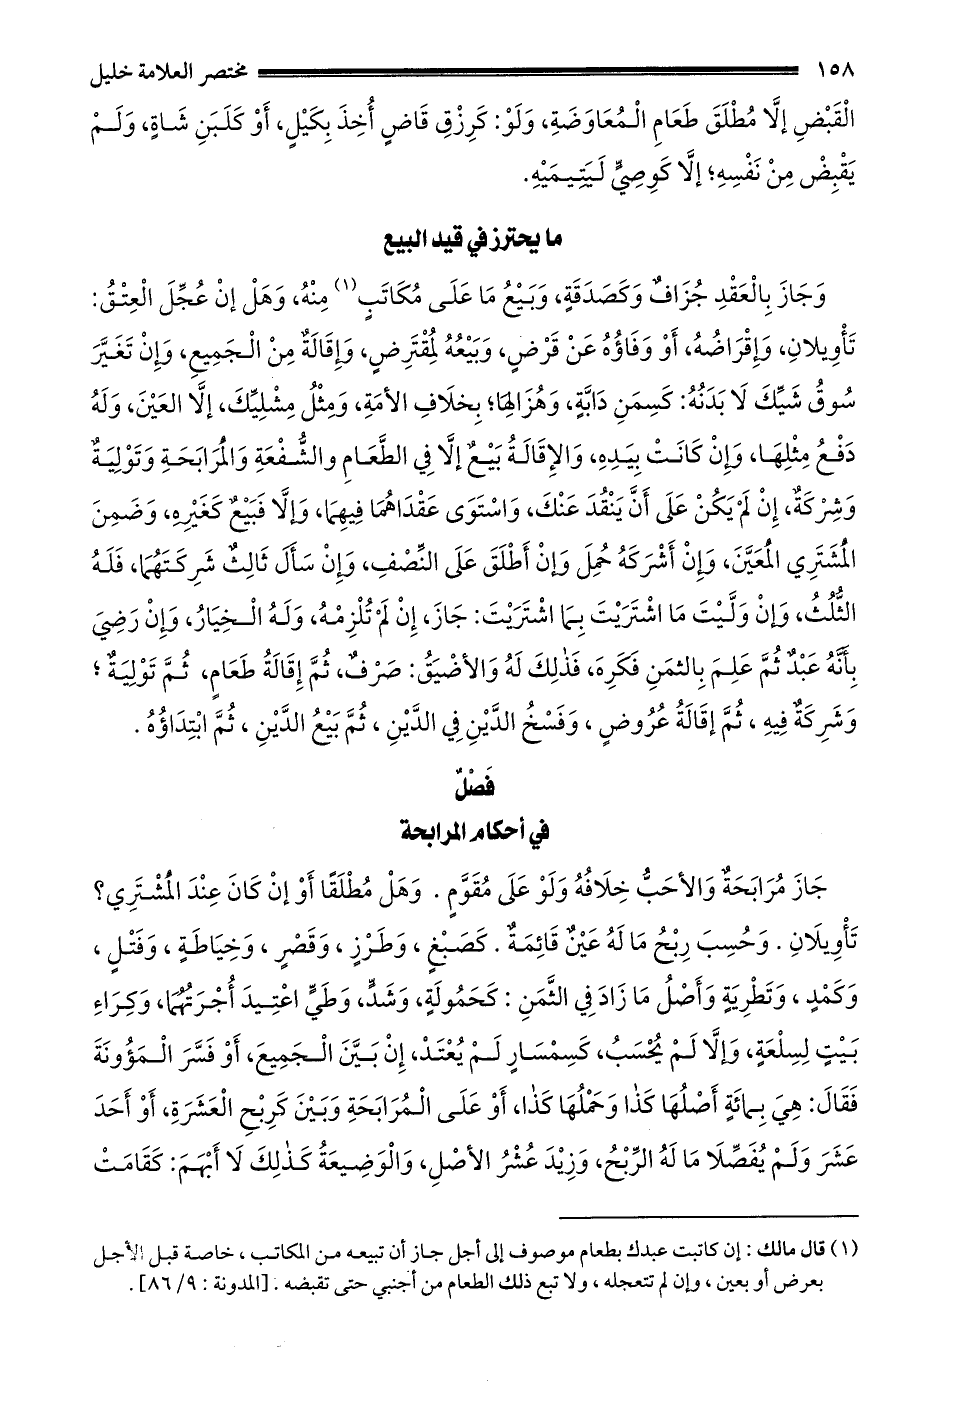 ١٥٨ مختصر العلامة خليل
الْقَبْضِ إلَّا مُطْلَقَ طَعَامِ الْمُعَاوَضَةِ، وَلَوْ: كَرِزْقِ قَاضٍ أُخِذَ بِكَيْلٍ، أَوْ كَلَبَنِ شَاةٍ، وَلَمْ
يَقْبِضْ مِنْ نَفْسِهِ؛ إلَّا كَوِصِيٍّ لَيَتِيمَيْهِ.
ما يحترز في قيد البيع
وَجَازَ بِالْعَقْدِ جُزَافٌ وَكَصَدَقَةٍ، وَبَيْعُ مَا عَلَى مُكَاتَبٍ(١) مِنْهُ، وَهَلْ إنْ عُجِّلَ الْعِتْقُ:
تَأْوِيلانِ، وَإِقْرَاضُهُ، أَوْ وَفَاؤُهُ عَنْ قَرْضٍ، وَبَيْعُهُ لِمُقْتَرِضٍ، وَإِقَالَةٌ مِنْ الْجَمِيعِ، وَإِنْ تَغَيَّرَ
سُوقُ شَيِّكَ لَا بَدَنُهُ: كَسِمَنِ دَابَّةٍ، وَهُزَالِهَا؛ بِخلَافِ الأمَةِ، وَمِثْلُ مِثْلِيِّكَ، إلَّا العَيْنَ، وَلَهُ
دَفْعُ مِثْلِهَا، وَإِنْ كَانَتْ بِيَدِهِ، وَالإقَالَةُ بَيْعٌ إلَّا فِي الطَّعَامِ والشُّفْعَةِ وَالْمُرَابَحَةِ وَتَوْلِيَةٌ
وَشِرْكَةٌ، إنْ لَمْ يَكُنْ عَلَى أَنَّ يَنْقُدَ عَنْكَ، وَاسْتَوَى عَقْدَاهُمَا فِيهِمَا، وَإلَّا فَبَيْعٌ كَغَيْرِهِ، وَضَمِنَ
الْمُشْتَرِي الْمُعَيَّنَ، وَإِنْ أَشْرَكَهُ حُمِلَ وَإنْ أَطْلَقَ عَلَى النِّصْفِ، وَإِنْ سَأَلَ ثَالِثٌ شَرِكَتَهُمَا، فَلَهُ
الثُّلُثُ، وَإنْ وَلَّيْتَ مَا اشْتَرَيْتَ بِمَا اشْتَرَيْتَ: جَازَ، إِنْ لَمْ تُلْزِمْهُ، وَلَهُ الْخِيَارُ، وَإِنْ رَضِيَ
بِأَنَّهُ عَبْدٌ ثُمَّ عَلِمَ بِالثمَنِ فَكَرِهَ، فَذَلِكَ لَهُ وَالأضْيَقُ: صَرْفٌ، ثُمَّ إقَالَةُ طَعَامٍ، ثُمَّ تَوْلِيَةٌ ؛
وَشَرِكَةٌ فِيهِ ، ثُمَّ إقَالَةُ عُرُوضٍ ، وَفَسْخُ الدَّيْنِ فِي الدَّيْنِ ، ثُمَّ بَيْعُ الدَّيْنِ ، ثُمَّ ابْتِدَاؤُهُ .
فَصْلٌ
في أحكام المرابحة
جَازَ مُرَابَحَةٌ وَالأحَبُّ خِلافُهُ وَلَوْ عَلَى مُقَوَّمٍ . وَهَلْ مُطْلَقًا أوْ إنْ كَانَ عِنْدَ الْمُشْتَرِي؟
تَأْوِيلَانِ . وَحُسِبَ رِبْحُ مَا لَهُ عَيْنٌ قَائِمَةٌ . كَصَبْغٍ ، وَطَرْزٍ ، وَقَصْرٍ ، وَخِيَاطَةٍ ، وَفَتْلٍ ،
وَكَمْدٍ ، وَتَطْرِيَةٍ وَأَصْلُ مَا زَادَ فِي الثَّمَنِ : كَحَمُولَةٍ، وَشَدٍّ، وَطَيٍّ اعْتِيدَ أُجْرَتُهُمَا، وَكِرَاءِ
بَيْتٍ لِسِلْعَةٍ، وَإلَّا لَمْ يُحْسَبُ، كَسِمْسَارٍ لَمْ يُعْتَدْ، إنْ بَيَّنَ الْجَمِيعَ، أَوْ فَسَّرَ الْمَؤُونَةَ
فَقَالَ: هِيَ بِمِائَةٍ أَصْلُهَا كَذَا وَحَمْلُهَا كَذَا، أَوْ عَلَى الْمُرَابَحَةِ وَبَيْنَ كَرِبْحِ الْعَشَرَةِ، أَوْ أَحَدَ
عَشَرَ وَلَمْ يُفَصِّلَا مَا لَهُ الرِّبْحُ، وَزِيْدَ عُشْرُ الأصْلِ، وَالْوَضِيعَةُ كَذَلِكَ لَا أَبْهَمَ: كَقَامَتْ
(١) قال مالك : إن كاتبت عبدك بطعام موصوف إلى أجل جاز أن تبيعه من المكاتب ، خاصة قبل الأجل
بعرض أو بعين ، وإن لم تتعجله ، ولا تبع ذلك الطعام من أجنبي حتى تقبضه . [المدونة : ٩/ ٨٦] .